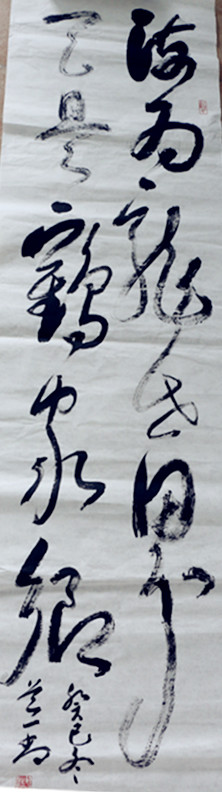 海為龍世界
云是鶴家鄉
癸巳冬